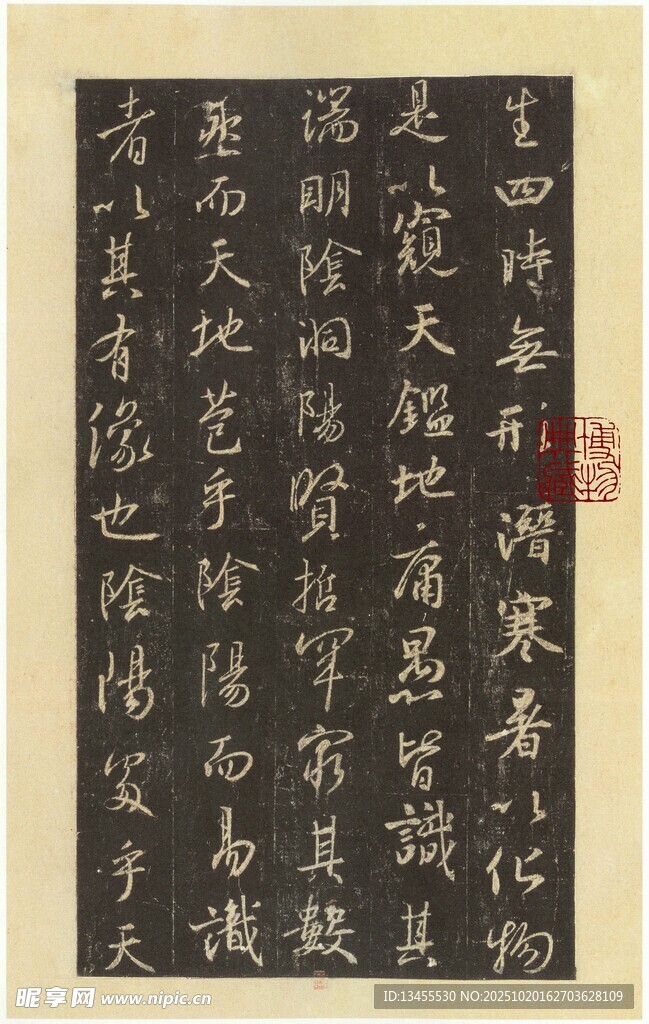 生四時無形潛寒暑以化物
是以窺天鑑地庸愚皆識其
端明陰洞陽賢哲罕窮其數
然而天地苞乎陰陽而易識
者以其有像也陰陽處乎天
博物
典藏
昵享网 www.nipic.cn
ID:13455530 NO:20251020162703628109